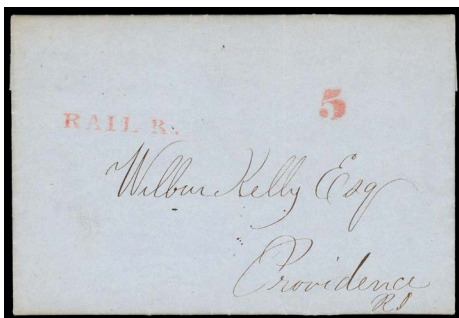 5
RAIL R.
Wilbur Kelly Esq
Providence
RI